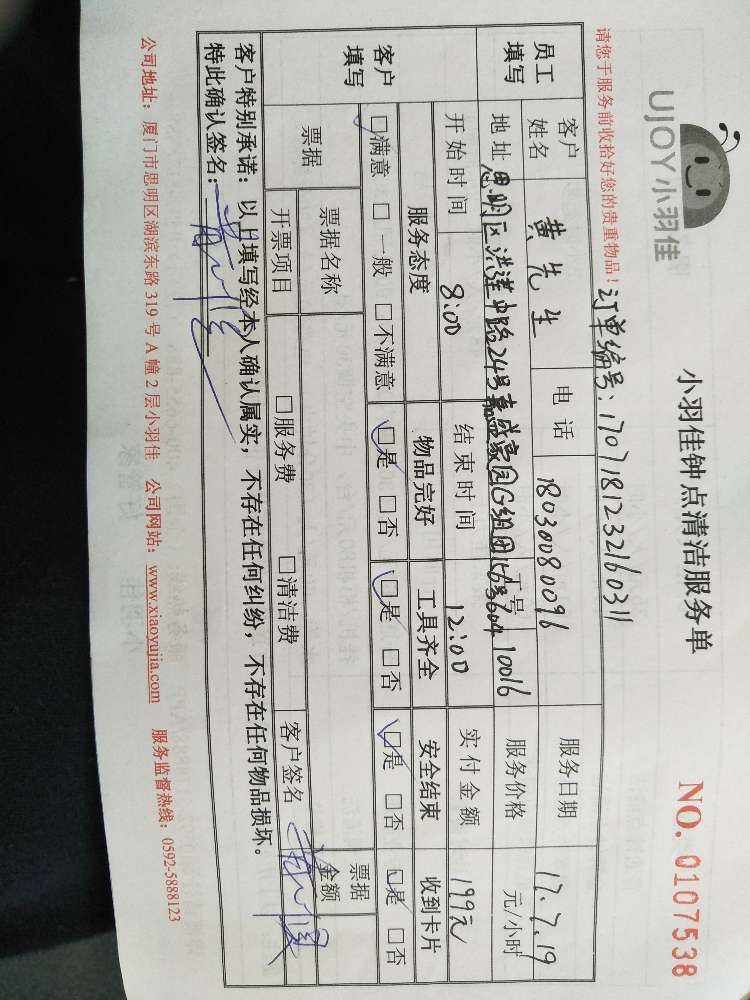 UJOY小羽佳
小羽佳钟点清洁服务单
NO. 0107538
请您于服务前收拾好您的贵重物品！
订单编号：1707181232160311
员工填写
客户姓名 黄先生 电话 18030080096 服务日期 17.7.19
地址 思明区洪莲中路24号嘉盛家园G组团 604 工号 10016 服务价格 元/小时
开始时间 8:00 结束时间 12:00 实付金额 199元
客户填写
服务态度 物品完好 工具齐全 安全结束 收到卡片
□满意 □一般 □不满意 □是 □否 □是 □否 □是 □否 □是 □否
票据 票据名称 票据金额
开票项目 □服务费 □清洁费 客户签名
客户特别承诺：以上填写经本人确认属实，不存在任何纠纷，不存在任何物品损坏。
特此确认签名：
公司地址：厦门市思明区湖滨东路 319 号 A 幢 2 层小羽佳 公司网站：www.xiaoyujia.com 服务监督热线：0592-5888123